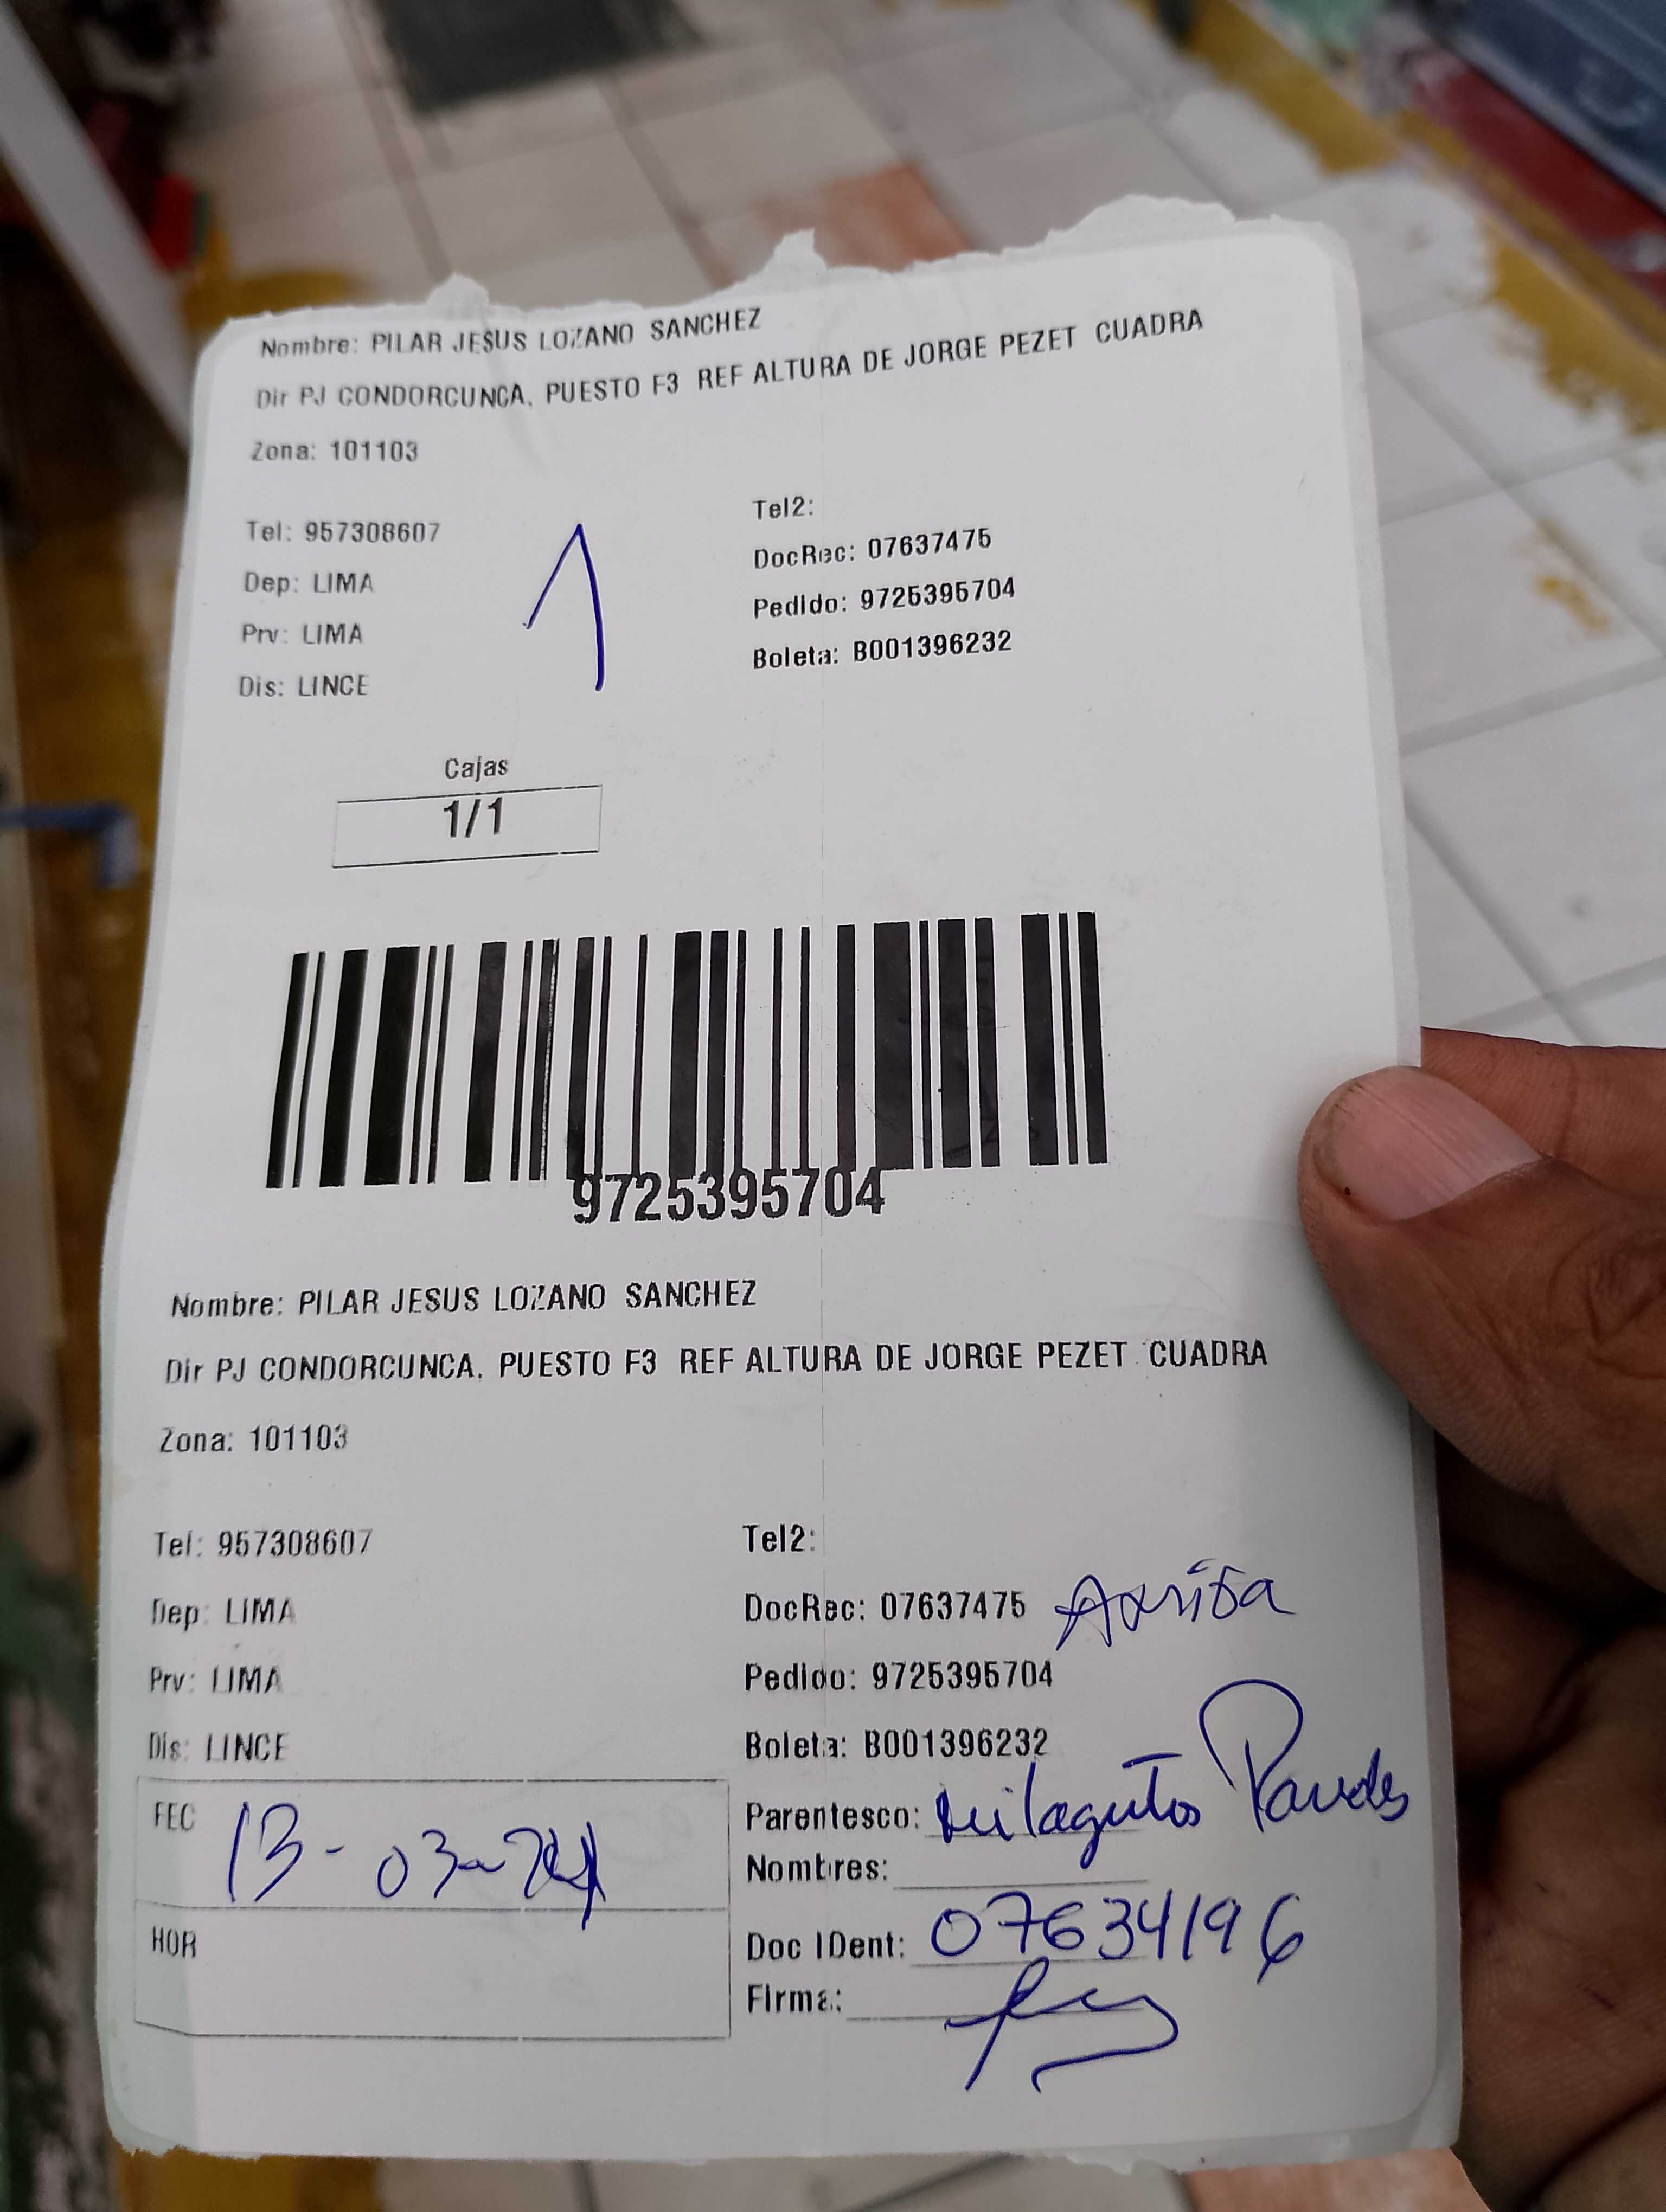 Nombre: PILAR JESUS LOZANO SANCHEZ
Dir PJ CONDORCUNCA, PUESTO F3 REF ALTURA DE JORGE PEZET CUADRA
Zona: 101103
Tel: 957308607
Dep: LIMA
Prv: LIMA
Dis: LINCE
1
Tel2:
DocRec: 07637475
Pedido: 9725395704
Boleta: B001396232
Cajas
1/1
9725395704
Nombre: PILAR JESUS LOZANO SANCHEZ
Dir PJ CONDORCUNCA. PUESTO F3 REF ALTURA DE JORGE PEZET CUADRA
Zona: 101103
Tel: 957308607
Dep: LIMA
Prv: LIMA
Dis: LINCE
FEC 13-03-24
HOR
Tel2:
DocRec: 07637475 Arriba
Pedido: 9725395704
Boleta: B001396232
Parentesco: Milagritos Paredes
Nombres:
Doc IDent: 07634196
Firma: